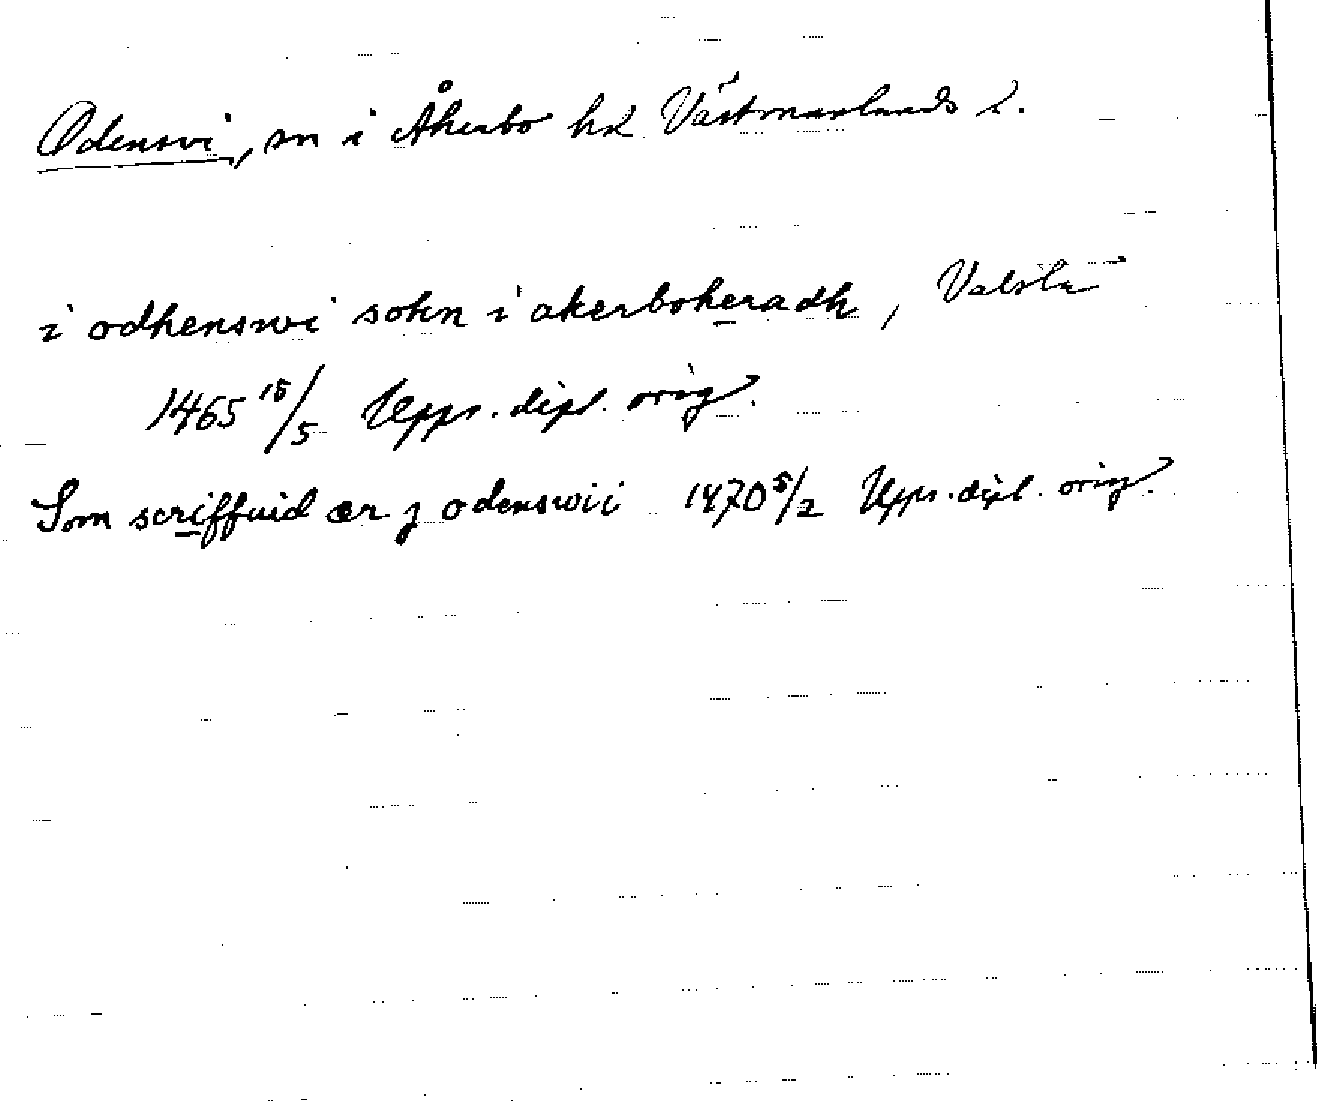 Odensvi, sn i Åkerbo hd Västmanlands l.
i odhenswi sokn i akerboheradh, Valsta
1465 15/5 Upps. dipl. orig.
Som scriffuid ær j odenswii 1470 5/2 Upps. dipl. orig.